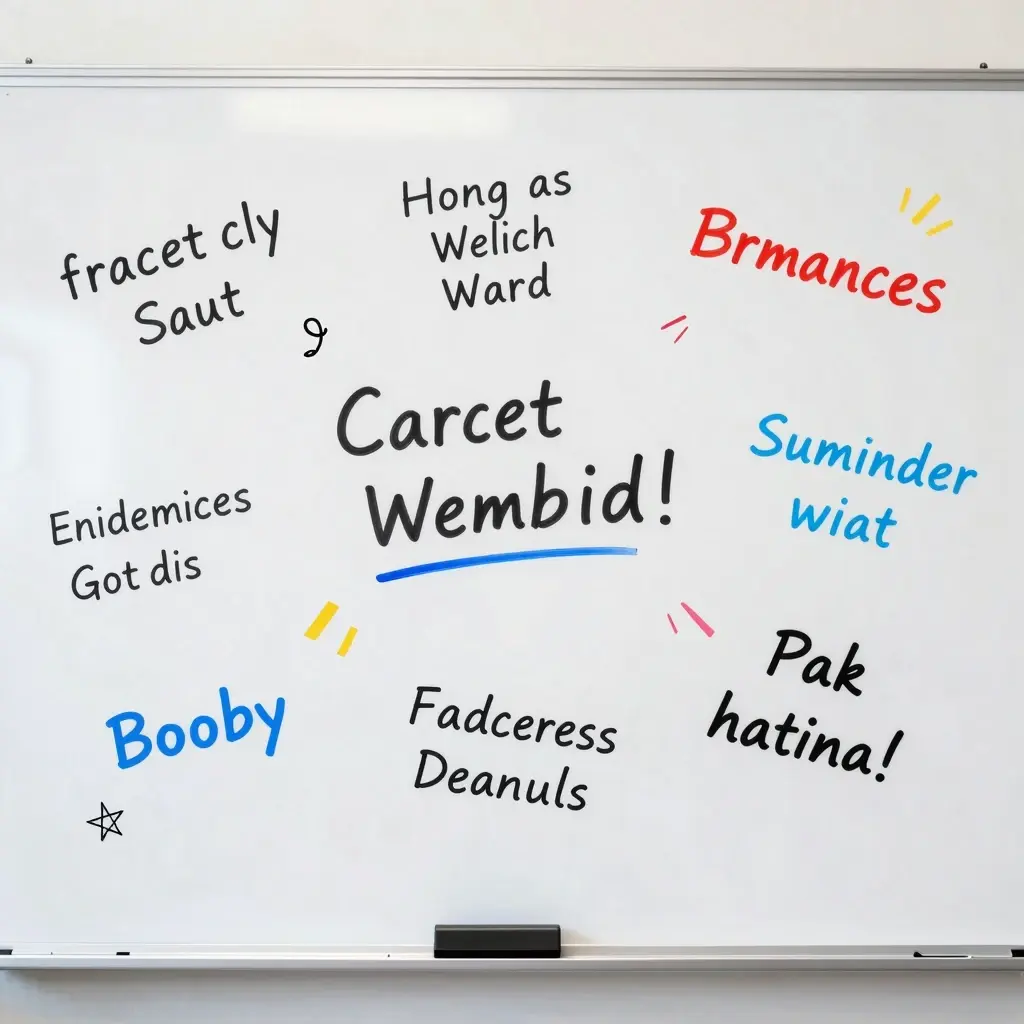 fracet cly
Saut
Hong as
Welich
Ward
Brmances
Carcet
Wembid!
Suminder
wiat
Enidemices
Got dis
Booby
Fadceress
Deanuls
Pak
hatina!